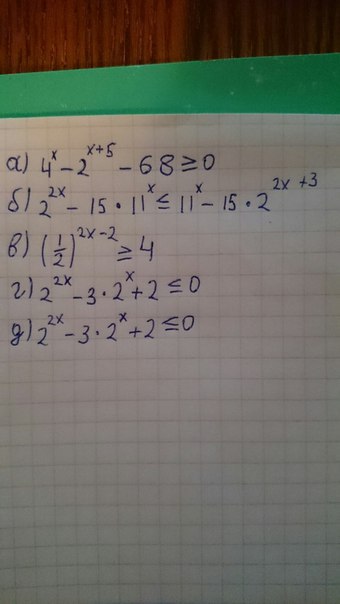 а) 4^x - 2^(x+5) - 68 ≥ 0
б) 2^(2x) - 15 · 11^x ≤ 11^x - 15 · 2^(2x+3)
в) (1/2)^(2x-2) ≥ 4
г) 2^(2x) - 3 · 2^x + 2 ≤ 0
д) 2^(2x) - 3 · 2^x + 2 ≤ 0